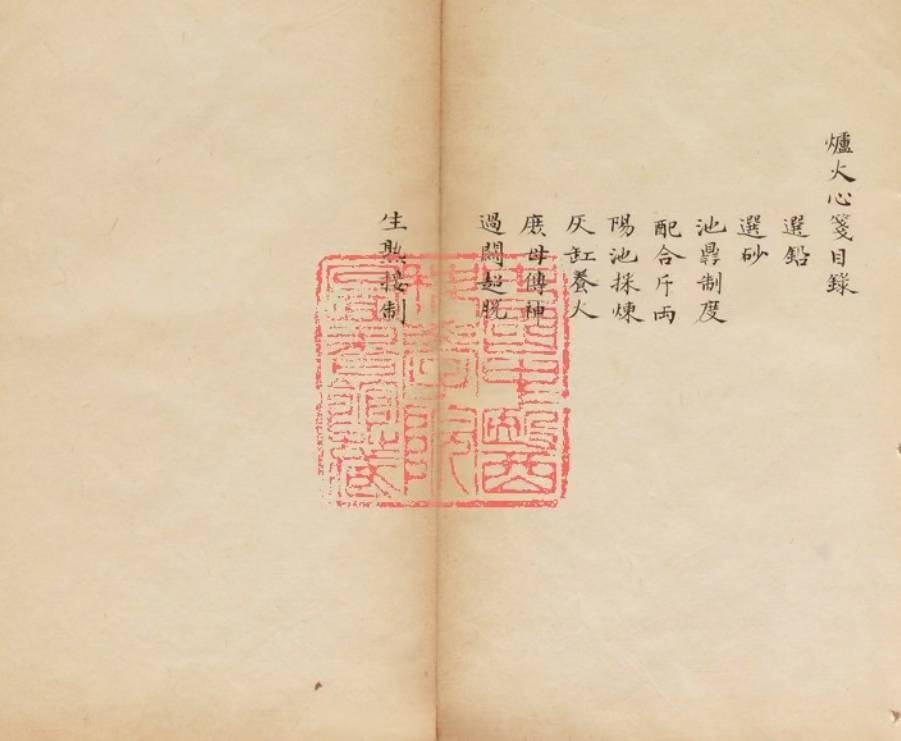 爐火心箋目錄
選鉛
選砂
池鼎制度
配合斤両
陽池採煉
灰缸養火
庶母傳神
過關超脱
生熟接制